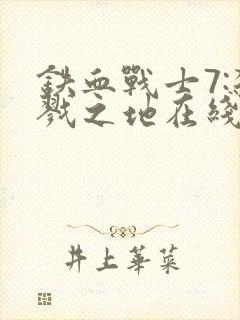 鉄血戰士7:殺
戮之地在綫
井上華菜